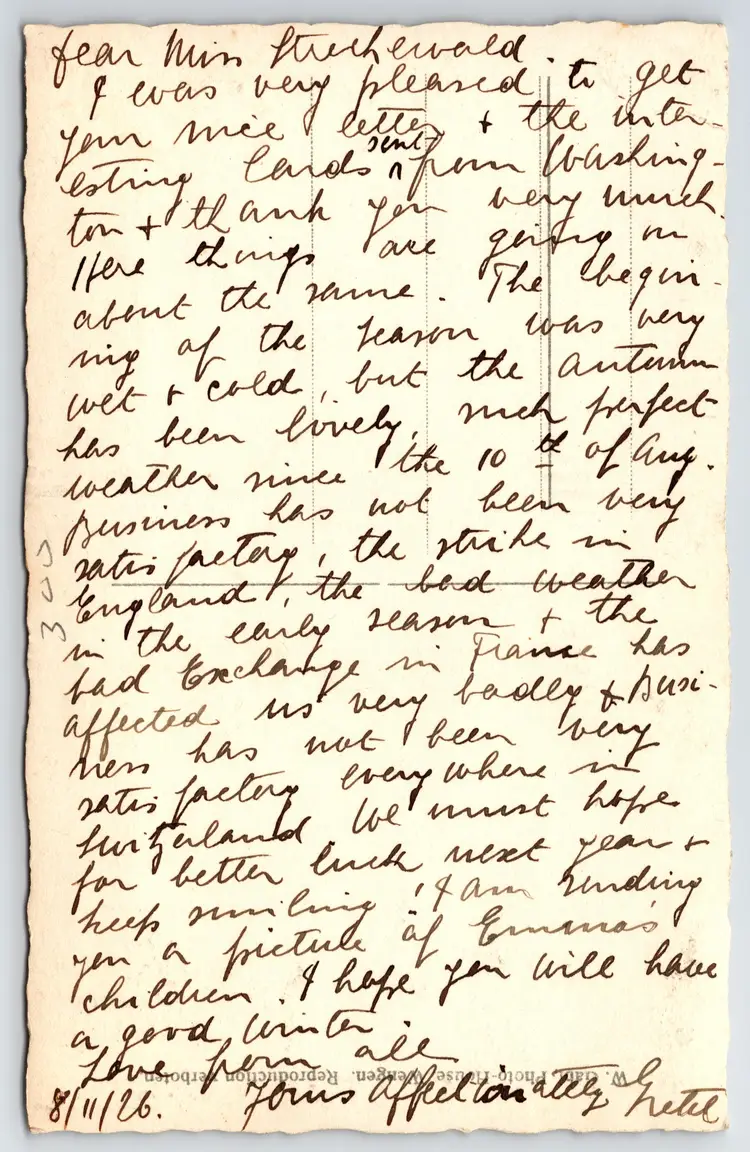 Dear Miss Strechewald.
I was very pleased to get
your nice letter + the inter-
esting Cards sent from Washing-
ton + thank you very much.
Here things are going on
about the same. The begin-
ning of the season was very
wet + cold, but the autumn
has been lovely, such perfect
weather since the 10th of Aug.
Business has not been very
satisfactory, the strike in
England, the bad weather
in the early season + the
bad Exchange in France has
affected us very badly + Busi-
ness has not been very
satisfactory everywhere in
Switzerland. We must hope
for better luck next year +
keep smiling, I am sending
you a picture of Emma's
children. I hope you will have
a good winter.
Love from all
Yours Affectionately Gretel
8/11/26.
300
W. Gabi, Photo-House Wengen. Reproduction verboten.